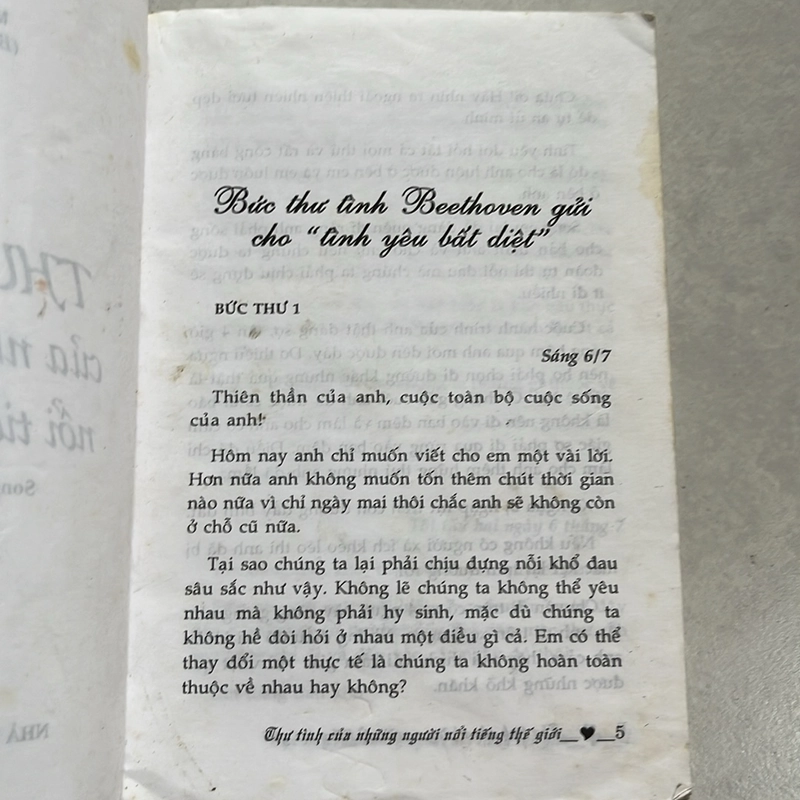 Bức thư tình Beethoven gửi
cho "tình yêu bất diệt"
BỨC THƯ 1
Sáng 6/7
Thiên thần của anh, cuộc toàn bộ cuộc sống
của anh!
Hôm nay anh chỉ muốn viết cho em một vài lời.
Hơn nữa anh không muốn tốn thêm chút thời gian
nào nữa vì chỉ ngày mai thôi chắc anh sẽ không còn
ở chỗ cũ nữa.
Tại sao chúng ta lại phải chịu đựng nỗi khổ đau
sâu sắc như vậy. Không lẽ chúng ta không thể yêu
nhau mà không phải hy sinh, mặc dù chúng ta
không hề đòi hỏi ở nhau một điều gì cả. Em có thể
thay đổi một thực tế là chúng ta không hoàn toàn
thuộc về nhau hay không?
Thư tình của những người nổi tiếng thế giới__♥__5